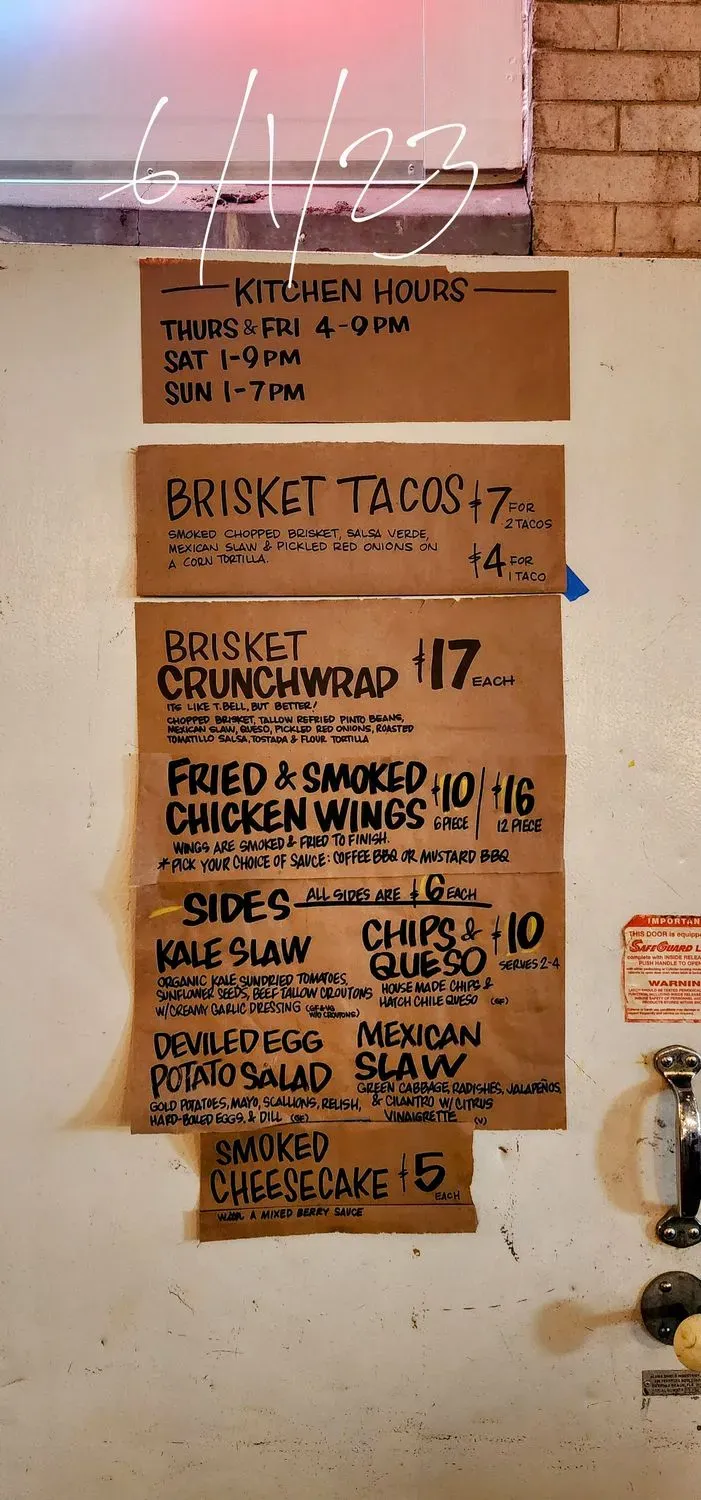 6/1/23
KITCHEN HOURS
THURS & FRI 4-9PM
SAT 1-9PM
SUN 1-7PM
BRISKET TACOS $7 FOR 2 TACOS
SMOKED CHOPPED BRISKET, SALSA VERDE,
MEXICAN SLAW & PICKLED RED ONIONS ON
A CORN TORTILLA.
$4 FOR 1 TACO
BRISKET
CRUNCHWRAP $17 EACH
ITS LIKE T.BELL, BUT BETTER!
CHOPPED BRISKET, TALLOW REFRIED PINTO BEANS,
MEXICAN SLAW, QUESO, PICKLED RED ONIONS, ROASTED
TOMATILLO SALSA, TOSTADA & FLOUR TORTILLA
FRIED & SMOKED
CHICKEN WINGS
$10 / $16
6 PIECE 12 PIECE
WINGS ARE SMOKED & FRIED TO FINISH.
*PICK YOUR CHOICE OF SAUCE: COFFEE BBQ OR MUSTARD BBQ
SIDES ALL SIDES ARE $6 EACH
KALE SLAW
ORGANIC KALE, SUNDRIED TOMATOES,
SUNFLOWER SEEDS, BEEF TALLOW CROUTONS
W/CREAMY GARLIC DRESSING
W/O CROUTONS)
CHIPS & $10
QUESO SERVES 2-4
HOUSE MADE CHIPS &
HATCH CHILE QUESO (GF)
DEVILED EGG
POTATO SALAD
GOLD POTATOES, MAYO, SCALLIONS, RELISH,
HARD-BOILED EGGS, & DILL (GF)
MEXICAN
SLAW
GREEN CABBAGE, RADISHES, JALAPEÑOS,
& CILANTRO W/ CITRUS
VINAIGRETTE (V)
SMOKED
CHEESECAKE $5 EACH
A MIXED BERRY SAUCE
IMPORTAN
THIS DOOR is equipp
SAFEGUARD L
complete with INSIDE RELEA
PUSH HANDLE TO OPE
WARNIN